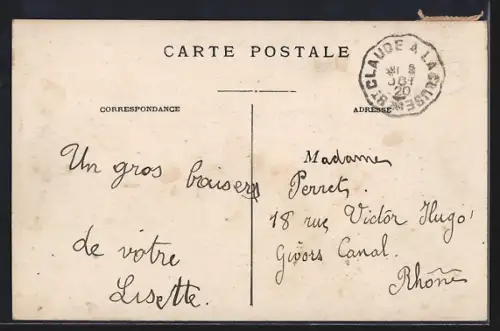 CARTE POSTALE
ST CLAUDE A LA CLUSE
20
CORRESPONDANCE
ADRESSE
Un gros baisers
de votre
Lisette.
Madame
Perret.
18 rue Victor Hugo
Givors Canal.
Rhône